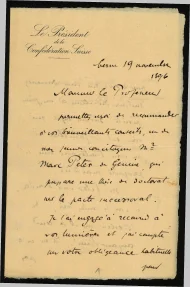 Le Président
de la
Confédération Suisse
Berne 19 novembre
1896
Monsieur le Professeur
permettez moi de recommander
à vos bienveillants conseils, un de
mes jeunes concitoyens Mr
Marc Peter de Genève qui
prépare une thèse de doctorat
sur le pacte
Je l'ai engagé à recourir à
vos lumières et j'ai compté
sur votre obligeance habituelle
pour